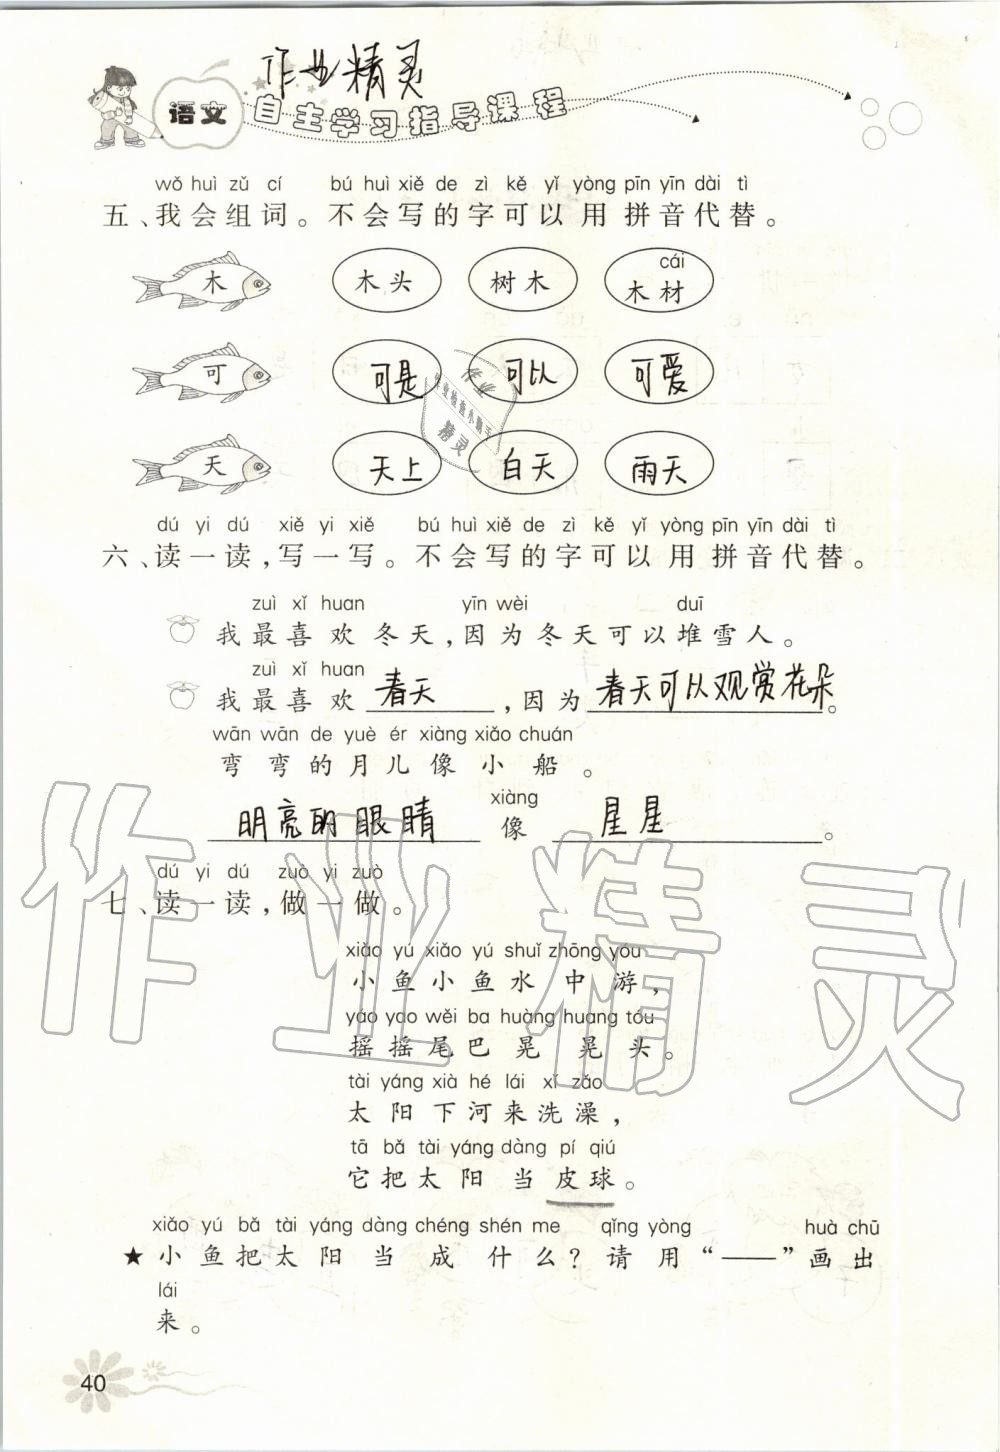 作业精灵
语文 自主学习指导课程
wǒ huì zǔ cí bú huì xiě de zì kě yǐ yòng pīn yīn dài tì
五、我会组词。不会写的字可以用拼音代替。
cái
木 木头 树木 木材
可 可是 可以 可爱
天 天上 白天 雨天
dú yi dú xiě yi xiě bú huì xiě de zì kě yǐ yòng pīn yīn dài tì
六、读一读,写一写。不会写的字可以用拼音代替。
zuì xǐ huan yīn wèi duī
我最喜欢冬天,因为冬天可以堆雪人。
zuì xǐ huan
我最喜欢春天,因为春天可以观赏花朵。
wān wān de yuè ér xiàng xiǎo chuán
弯弯的月儿像小船。
xiàng
明亮的眼睛像星星。
dú yi dú zuò yi zuò
七、读一读,做一做。
xiǎo yú xiǎo yú shuǐ zhōng yóu
小鱼小鱼水中游,
yáo yao wěi ba huàng huang tóu
摇摇尾巴晃晃头。
tài yáng xià hé lái xǐ zǎo
太阳下河来洗澡,
tā bǎ tài yáng dàng pí qiú
它把太阳当皮球。
xiǎo yú bǎ tài yáng dàng chéng shén me qǐng yòng huà chū
★小鱼把太阳当成什么?请用“——”画出
lái
来。
40
作业精灵